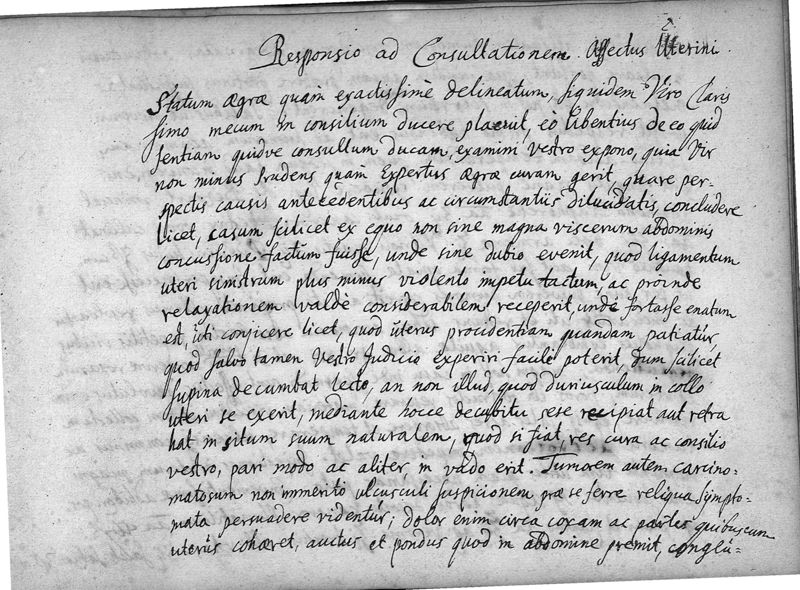 Responsio ad Consultationem Affectus Uterini.
Statum ægræ quam exactissimè delineatum, siquidem Viro Claris
simo mecum in consilium ducere placuit, eò libentius de eo quid
sentiam quidve consultum ducam, examini vestro expono, quia Vir
non minus Prudens quam Expertus ægræ curam gerit, quare per-
spectis causis antecedentibus ac circumstantiis dilucidatis, concludere
licet, casum scilicet ex equo non sine magna viscerum abdominis
concussione factum fuisse, unde sine dubio evenit, quod ligamentum
uteri sinistrum plus minus violento impetu tactum, ac proinde
relaxationem valdè considerabilem receperit, unde fortasse enatum
est, uti conjicere licet, quod uterus procidentiam quandam patiatur,
quod salvo tamen Vestro Judicio experiri facilè poterit, dum scilicet
supina decumbat lecto, an non illud quod duriusculum in collo
uteri se exerit, mediante hocce decubitu sese recipiat aut retra
hat in situm suum naturalem, quod si fiat, res cura ac consilio
vestro, pari modo ac aliter, in vado erit. Tumorem autem carcino-
matosum non immeritò ulcusculi suspicionem præ se ferre reliqua sympto-
mata persuadere videntur; dolor enim circa coxam ac partes quibuscum
uterus cohæret, auctus et pondus quod in abdomine premit, conglu-